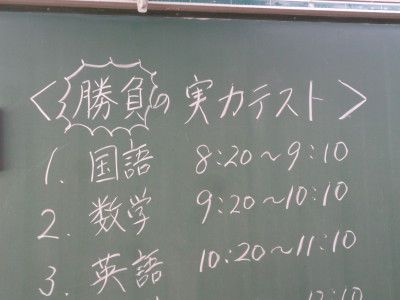 ＜勝負の実力テスト＞
1. 国語 8:20～9:10
2. 数学 9:20～10:10
3. 英語 10:20～11:10
12:10